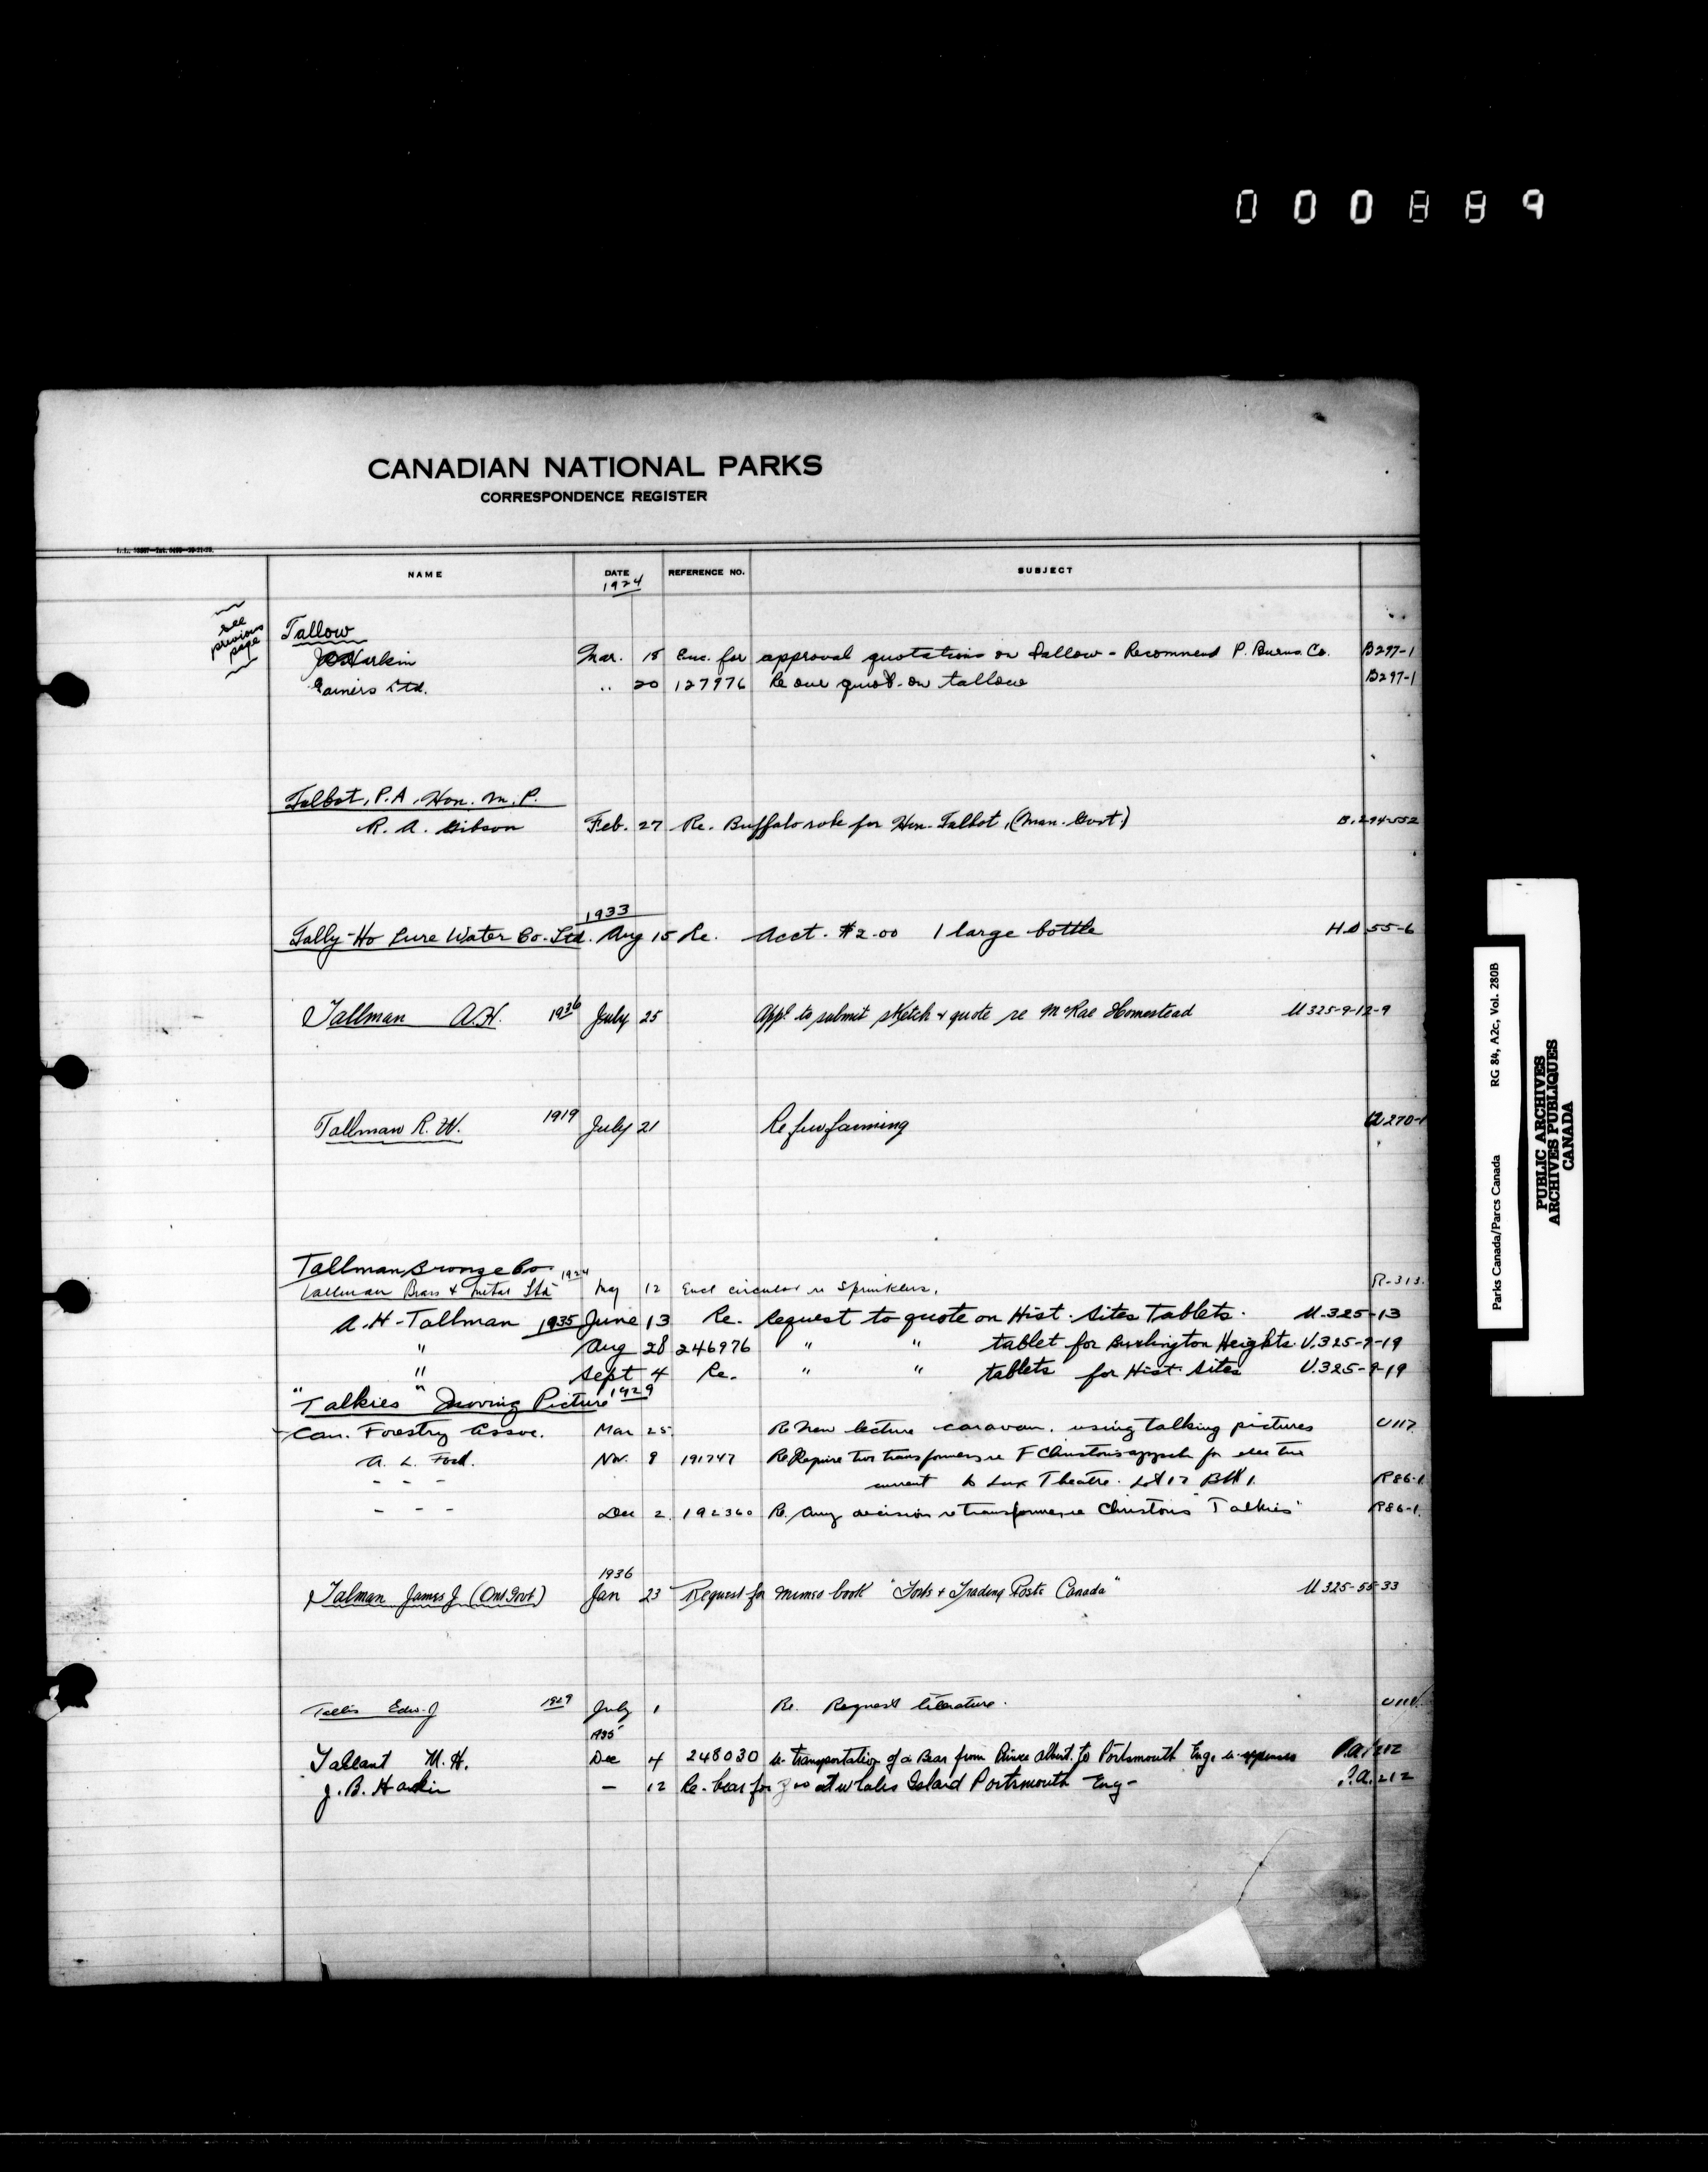 000889
CANADIAN NATIONAL PARKS
CORRESPONDENCE REGISTER
NAME DATE REFERENCE NO. SUBJECT
1924
see previous page
Tallow
Harkin Mar. 18 Enc. for approval quotations on tallow - Recommend P. Burns Co. B297-1
Gainers Ltd. " 20 127976 Re our quot. on tallow B297-1
Talbot, P.A. Hon. M.P.
R. A. Gibson Feb. 27 Re. Buffalo robe for Hon. Talbot, (Man. Govt.) B.294-552
1933
Tally-Ho Pure Water Co. Ltd. Aug 15 Re. Acct. $2.00 1 large bottle 55-6
Tallman A.H. 1936 July 25 Appl. to submit sketch & quote re McRae Homestead U325-9-12-9
Tallman R. W. 1919 July 21 Re fur farming U.270-1
Tallman Bronze Co
Tallman Brass & Metal Ltd 1924 May 12 Encl circular re Sprinklers. R-313.
A. H. Tallman 1935 June 13 Re. Request to quote on Hist. Sites Tablets. U.325-13
" Aug 28 246976 " " tablet for Burlington Heights. U.325-9-19
" Sept 4 Re. " " tablets for Hist. Sites U.325-9-19
"Talkies" Moving Picture 1929
Can. Forestry Assoc. Mar 25. Re New lecture caravan. using talking pictures U117
A. L. Ford. Nov. 8 191747 Re Require two transformers re F Christou's appn for electric
- - current to Lux Theatre. Lot 17 Blk 1. R86-1
- - - Dec 2. 192360 Re. Any decision re transformers re Christou's "Talkies" R86-1.
1936
Talman James J (Ont Govt) Jan 23 Request for mimeo book "Forts & Trading Posts Canada" U325-55-33
Tallis Edw. J 1929 July 1 Re. Request literature. U111.
1935
Tallant M. H. Dec 4 248030 re transportation of a Bear from Prince Albert to Portsmouth Eng. re expenses P.A. 212
J. B. Harkin - 12 Re. bear for zoo at Whales Island Portsmouth Eng - P.A. 212
Parks Canada/Parcs Canada RG 84, A2c, Vol. 280B
PUBLIC ARCHIVES
ARCHIVES PUBLIQUES
CANADA